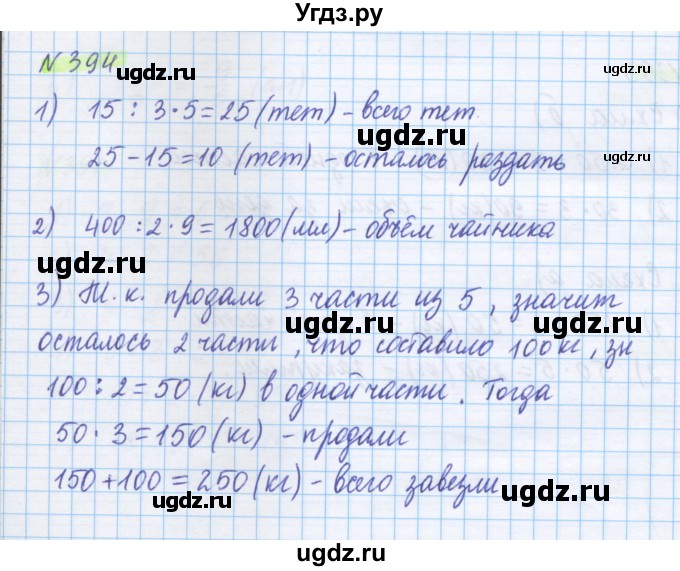 Угдз.ру
N 394
ugdz.ru ugdz.ru
1) 15 : 3·5=25 (тет) - всего тет.
ugdz.ru
25-15=10 (тет) - осталось раздать
ugdz.ru
2) 400 : 2 · 9 = 1800 (мл) - объём чайника
ugdz.ru
3) Т. к. продали 3 части из 5, значит
ugdz.ru ugdz.ru
осталось 2 части, что составило 100 кг, зн
100 : 2 = 50 (кг) в одной части. Тогда
ugdz.ru
50 · 3 = 150 (кг) - продали
ugdz.ru
150+100 = 250 (кг) - всего завезли
ugdz.ru ugdz.ru
ugdz.ru